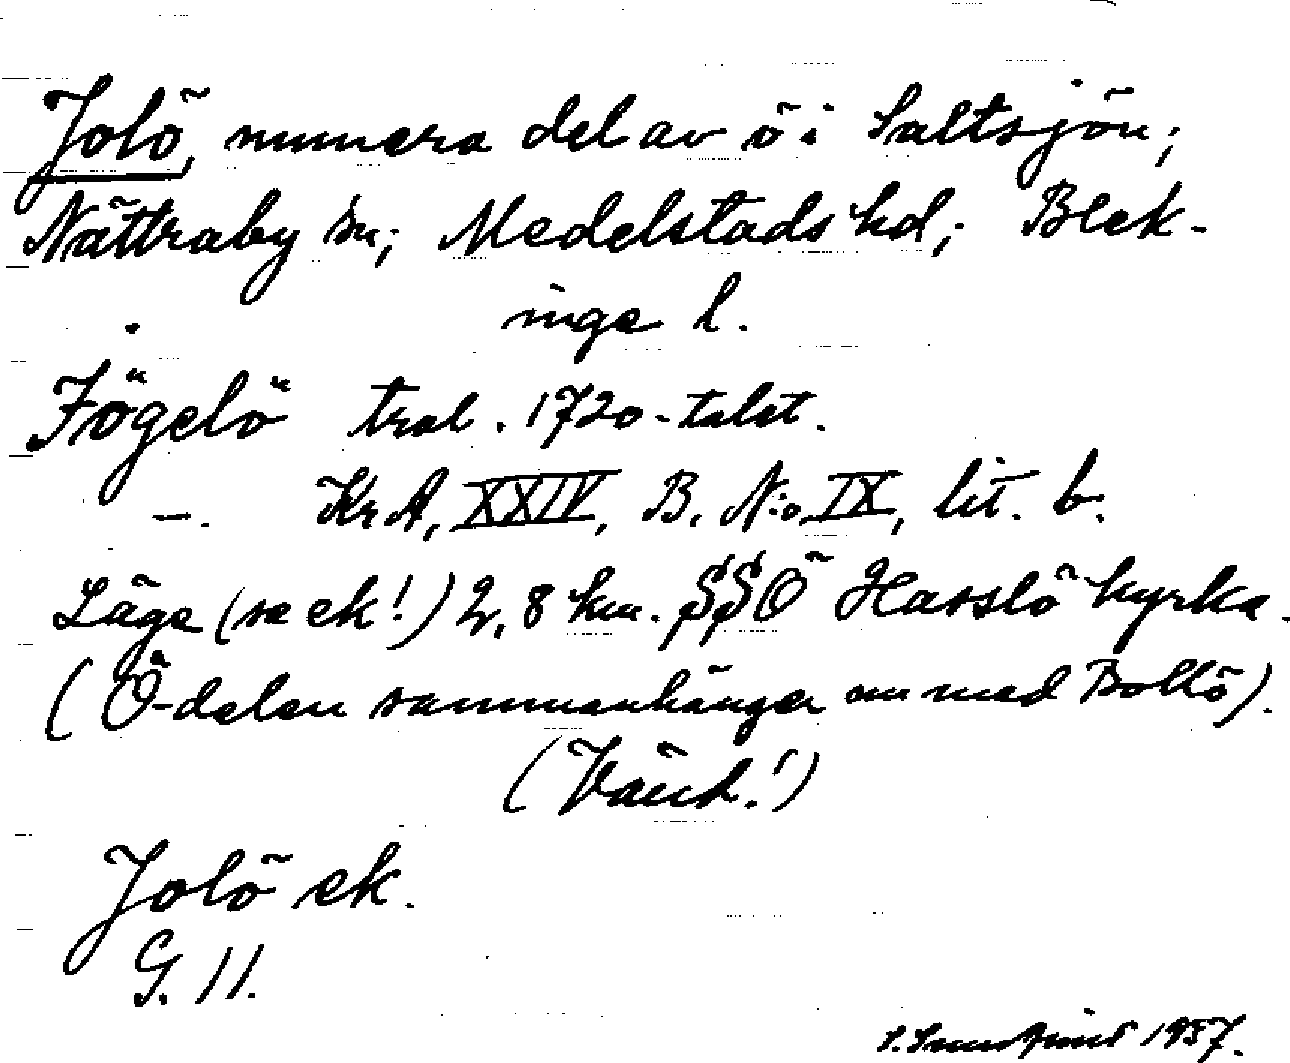 Jolö, numera del av ö i Saltsjön;
Nättraby sn; Medelstads hd; Blek-
inge l.
Fögelö trol. 1720-talet.
—. KrA, XXIV, B. N:o IX, lit. b.
Läge (se ek!) 2,8 km. SSÖ Hasslö kyrka.
(Ö-delen sammanhänger nu med Bollö).
(Vänd!)
Jolö ek.
G. 11.
1957.